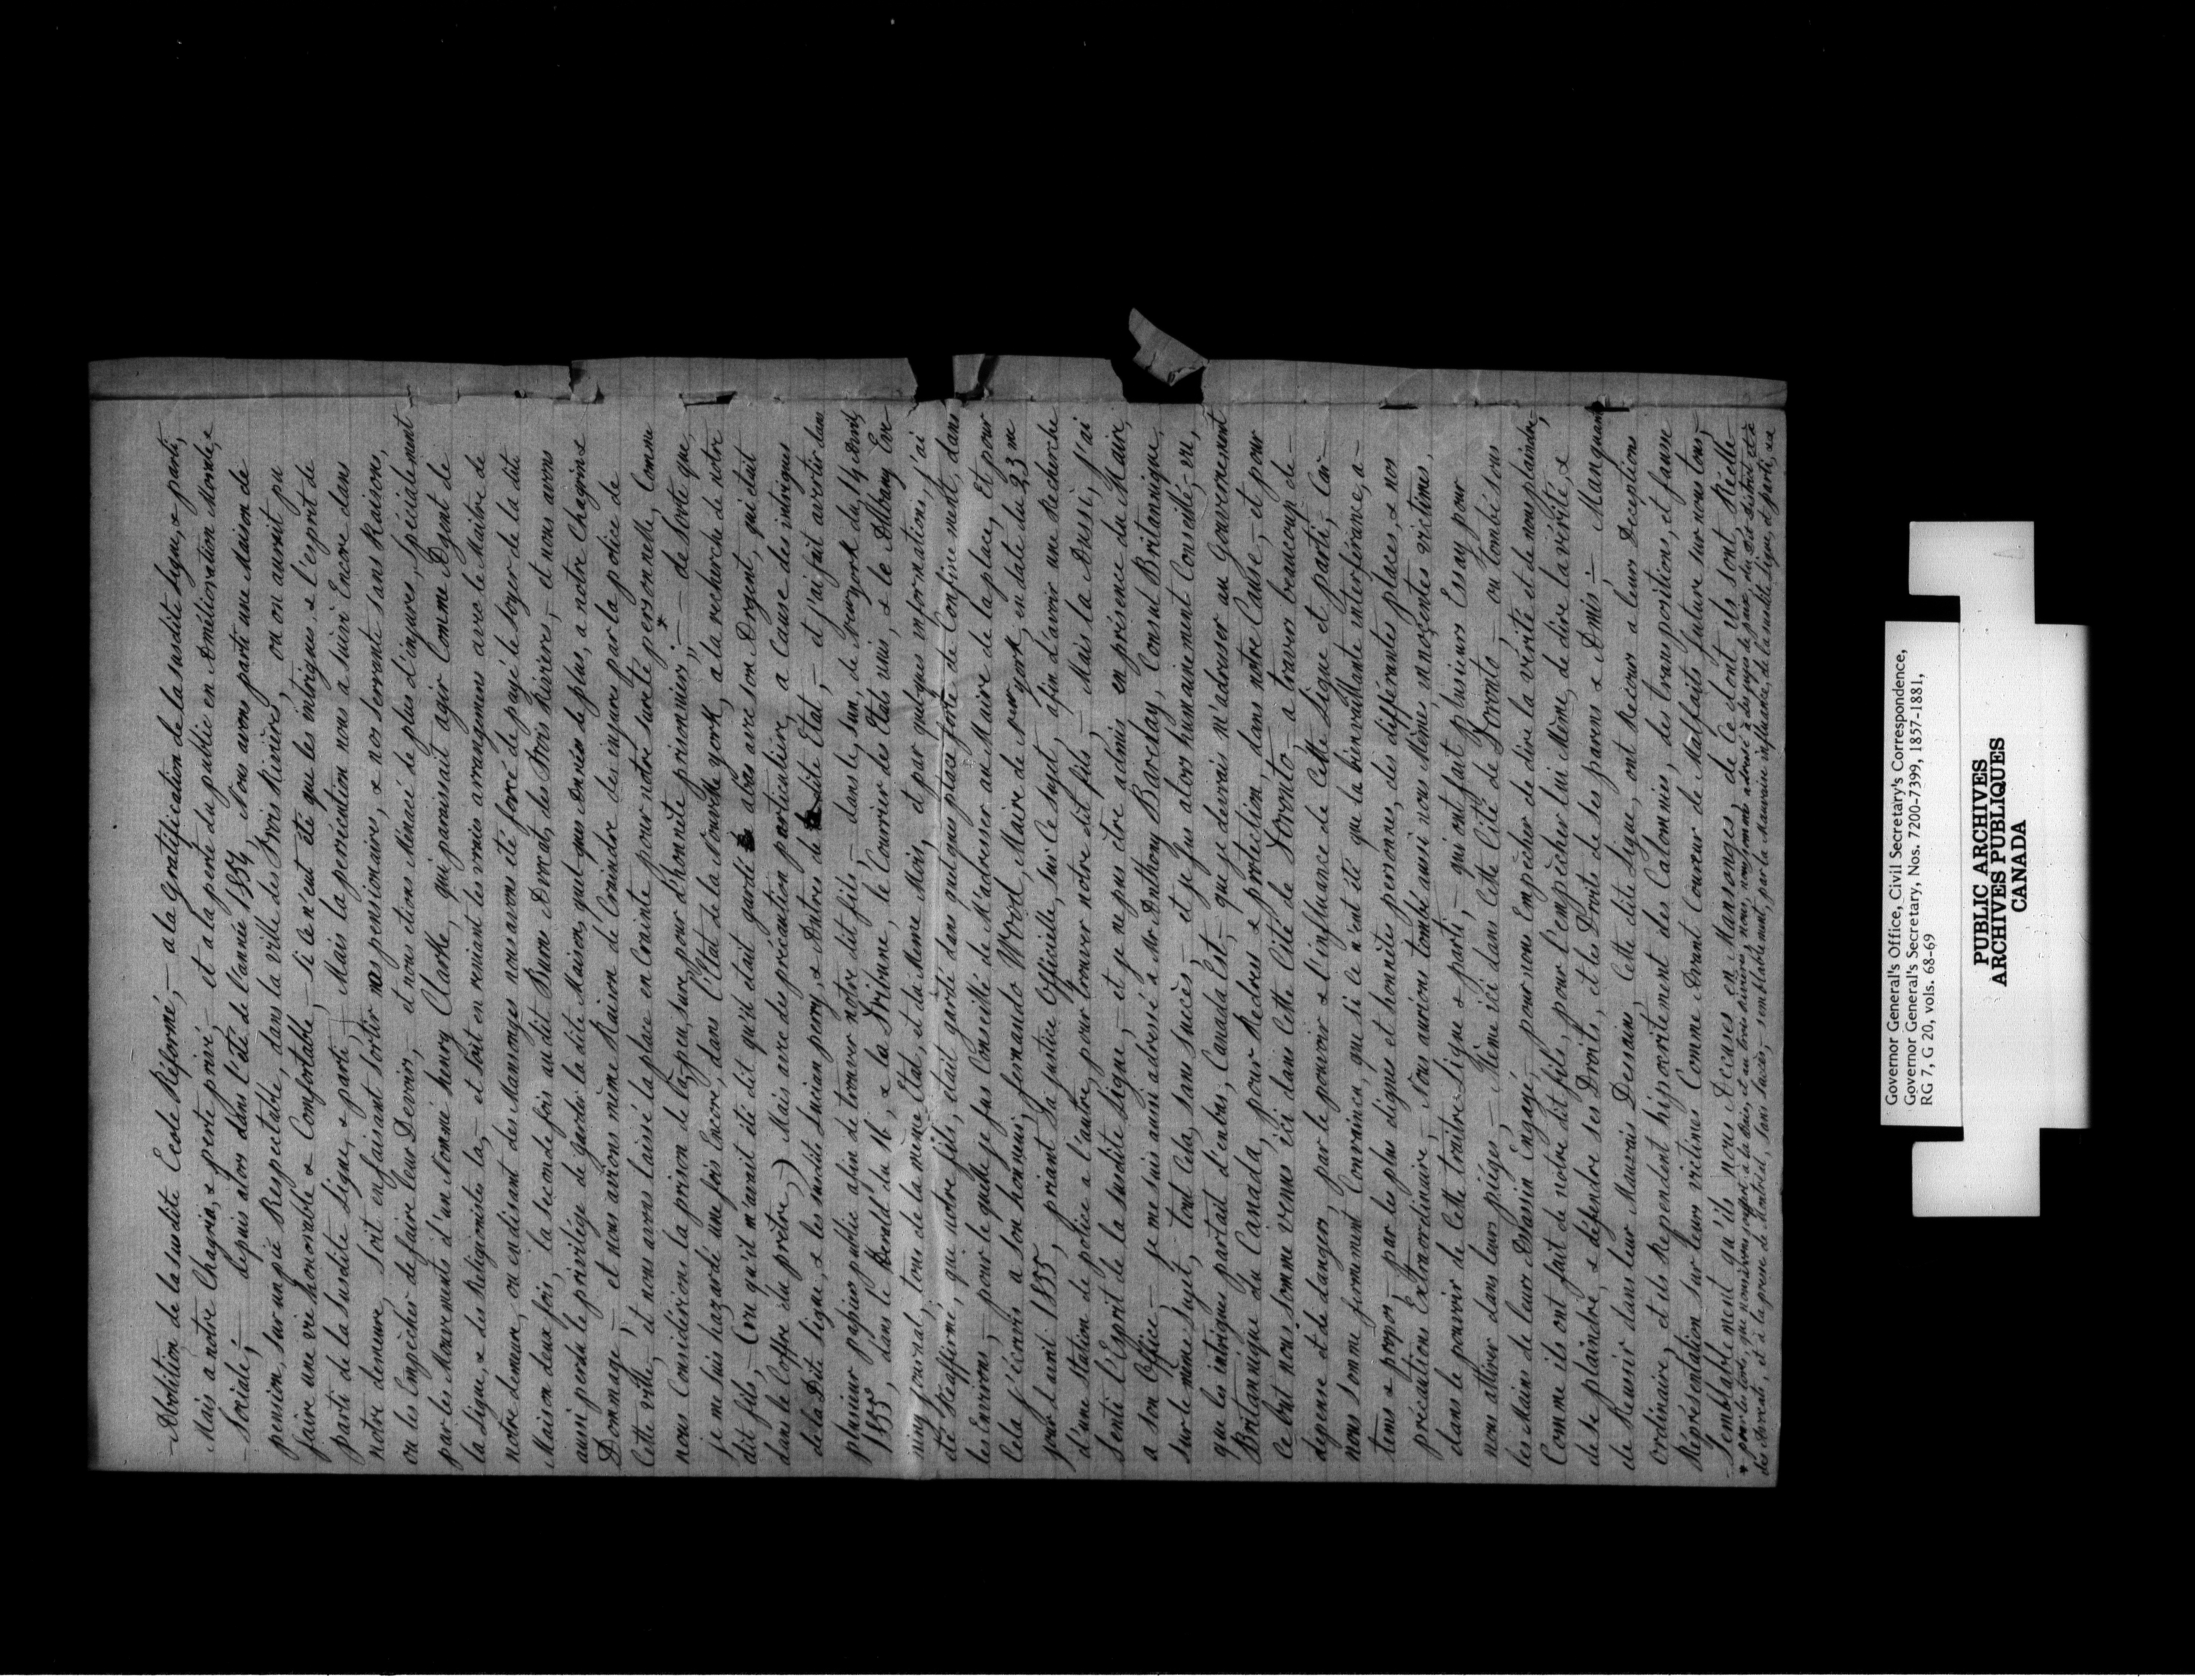 Abolition de la susdite Ecole Réformé, — a la Gratification de la susdite ligue, & parti,
Mais a notre Chagrin, & perte privé, — et a la perte du public en Amélioration Morale, &
Sociale, — depuis alors dans l'été de l'année 1854, Nous avons parti une Maison de
pension, sur un pié Respectable, dans la ville des Trois Rivières, ou on aurait pu
faire une vie honorable & Comfortable, — si ce n'eut été que les intrigues, & l'esprit de
parti de la susdite Ligue, & parti, — Mais la persécution nous a suivi Encore dans
notre demeure, soit en faisant sortir nos pensionaires, & nos servants sans Raison,
ou les Empècher de faire leur Devoir, — et nous etions Menacé de plus d'injures, Spécialement
par les Mouvements d'un Nommé henry Clarke, qui paraissait agir Comme Agent de
la Ligue, & des Religionistes la, — et soit en reniant les vraies arrangemens avec le Maître de
notre demeure, ou en disant des Mansonges nous avons été forcé de payé le loyer de la dite
Maison deux fois, la seconde fois au dit Burns Avocat, des Trois Rivières, — et nous avons
aussi perdu le privilége de garder la dite Maison, quel que en vies de plus, a notre Chagrin &
Dommage, — et nous avions même Raison de Craindre des injures par la police de
Cette ville, — et nous avons laissé la place en Crainte pour notre sureté personnelle, Comme
nous Considérions la prison de là, peu sure pour d'honnête prisonniers, — de sorte que,
je me suis hazardé une fois Encore, dans l'Etat de la Nouvelle york, a la recherche de notre
dit fils, — (vu qu'il m'avait été dit qu'il était gardé alors avec son Argent, qui était
dans le Coffre du prêtre,) Mais avec des précaution particulière, a Cause des intrigues
de la Dite ligue, & les susdits Lucian perry, & Autres de dite Etat, — et j'ai fait avertir dans
plusieur papiers public afin de trouver notre dit fils, — dans le Sun, de New york du 14 avril,
1855, dans le Herald du 16, & la Tribune, le Courrier des Etats unis, & le Albany Eve-
ning journal, tous de la même Etat, et du Même Mois, et par quelques informations, j'ai
été Reaffirmé, que notre fils, était gardé dans quelque place forte de Confinement, dans
les Environs, — pour le quelle je fus Conseillé de M'adresser au Maire de la place, Et pour
Cela j'écrivis a son honneur, fernando Wood, Maire de New york, en date du 23me
jour d'avril 1855, priant sa justice Officielle, sur Ce sujet, afin d'avoir une Recherche
d'une station de police a l'autre, pour trouver notre dit fils, — Mais la Aussi, j'ai
senti l'Esprit de la susdite Ligue, — et je ne pus être admis en présence du Maire,
a son Office, — je me suis aussi adressé a Mr Anthony Barclay, Consul Britannique,
sur le même sujet, — tout Cela, sans succès, — et je fus alors humainement Conseillé, — vu,
que les intrigues partait d'en bas, Canada Est, — que je devrais m'adresser au Gouvernement
Britannique du Canada, pour Redres & protection, dans notre Cause, — et pour
Ce but nous somme venus ici dans Cette Cité de Toronto, — a travers beaucoup de
depense et de danger, par le pouvoir & l'influance de Cette Ligue et parti, Car
nous somme fermement Convaincu, que si Ce n'eut été que la bienveillante interférance, a
tems & propos, — par les plus dignes et honnêtes personnes, des differantes places, & nos
précautions Extraordinaire, — Nous aurions tombé aussi nous Mêmes innocentes victimes,
dans le pouvoir de Cette traitre Ligue & parti, — qui ont fait plusieurs Essay pour
nous attirer dans leurs piéges, — Même ici dans Cette Cité de Toronto, — ou tombé sous
les Mains de leurs Assassin Engagé, — pour nous Empècher de dire la vérité et de nous plaindre,
Comme ils ont fait de notre dit fils, pour l'empècher lui Même, de dire la vérité, &
de se plaindre, & défendre ses Droits, et les Droits de ses parens & Amis, — Manquant
de Reussir dans leur Mauvais Dessains, Cette dite Ligue, ont Recour a leurs Deceptions
ordinaire, et ils Rependent hipocritement des Calomnies, des transpositions, et fausse
Représentation sur leurs victimes Comme Avant Coureur de Malfaits future sur nous tous,
Semblablement qu'ils nous Accuses en Mansonges, de Ce dont ils sont Réelle-
* pour les torts, que nous avons souffert a la Baie, et au trois rivières, nous, nous somme adressé a des juges de paix, du dit district et a
des Avocats, et à la presse de Montréal, sans succès, — semblablement, par la Mauvaise influence, de la susdite Ligue, et parti, &a
Governor General's Office, Civil Secretary's Correspondence,
Governor General's Secretary, Nos. 7200-7399, 1857-1881,
RG 7, G 20, vols. 68-69
PUBLIC ARCHIVES
ARCHIVES PUBLIQUES
CANADA